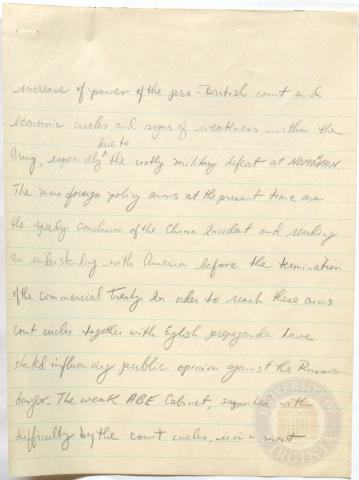 increase of power of the pro-British court and
economic circles and signs of weakness within the
due to
Army, especially ^ the costly military defeat at NOMOHAN.
The main foreign policy aims at the present time are
the speedy conclusion of the China Incident and reaching
an understanding with America before the termination
of the commercial Treaty. In order to reach these aims
court circles together with English propaganda have
started influencing public opinion against the Russian
danger. The weak ABE Cabinet, supported with
difficulty by the court circles, is in a most
UNIVERSITY OF VIRGINIA